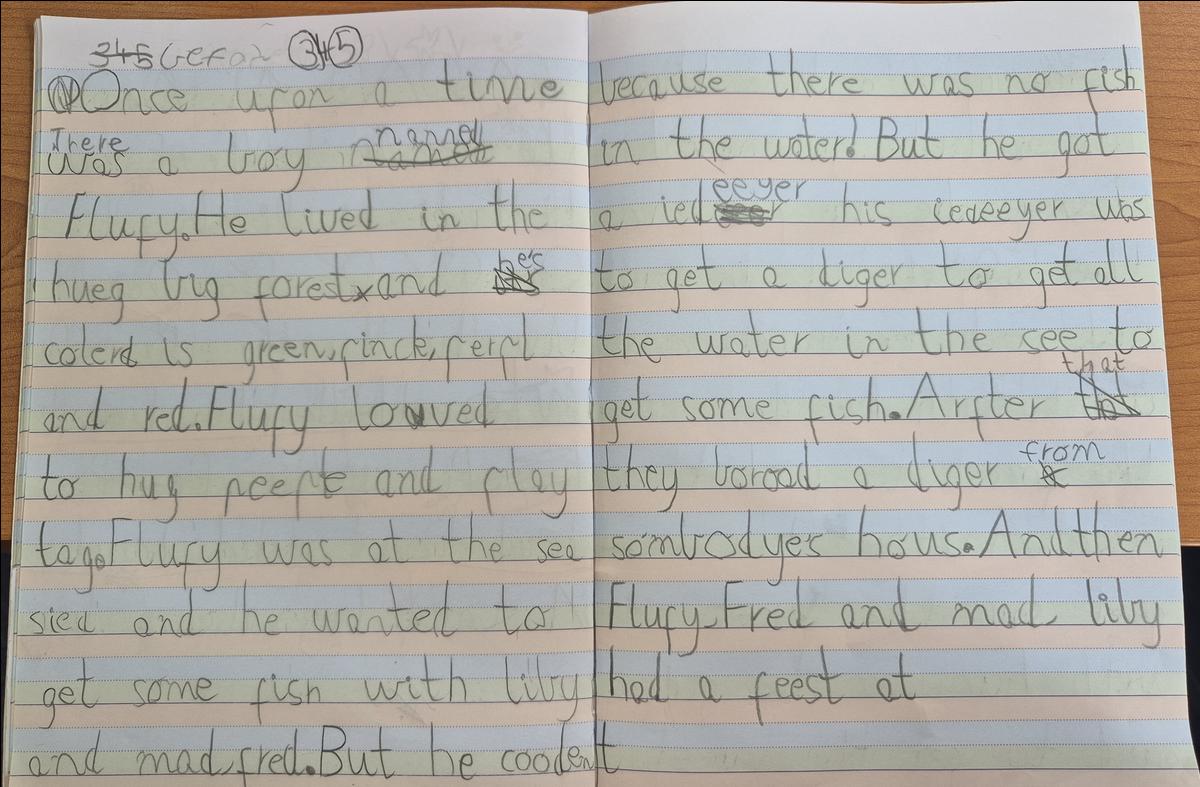 345 345
Once upon a time
There
was a boy named
Flufy. He lived in the
hueg big forest and he's
colerd is green, pinck, perpl
and red. Flufy louved
to hug peeple and play
tag. Flufy was at the sea
sied and he wanted to
get some fish with liby
and mad fred. But he coodent
because there was no fish
in the water! But he got
a iedeeyer his iedeeyer was
to get a diger to get all
the water in the see to
get some fish. Arfter that
they borood a diger from
sombodye's hous. And then
Flufy, Fred and mad liby
had a feest at